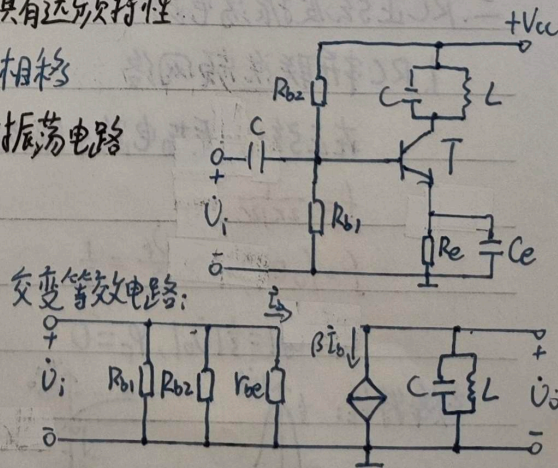 具有选频特性
相移
振荡电路
+Vcc
Rb2
C
L
C
T
+
U̇i
-
Rb1
Re
Ce
交变等效电路:
İb
+
U̇i
-
Rb1
Rb2
rbe
βİb
C
L
+
U̇o
-